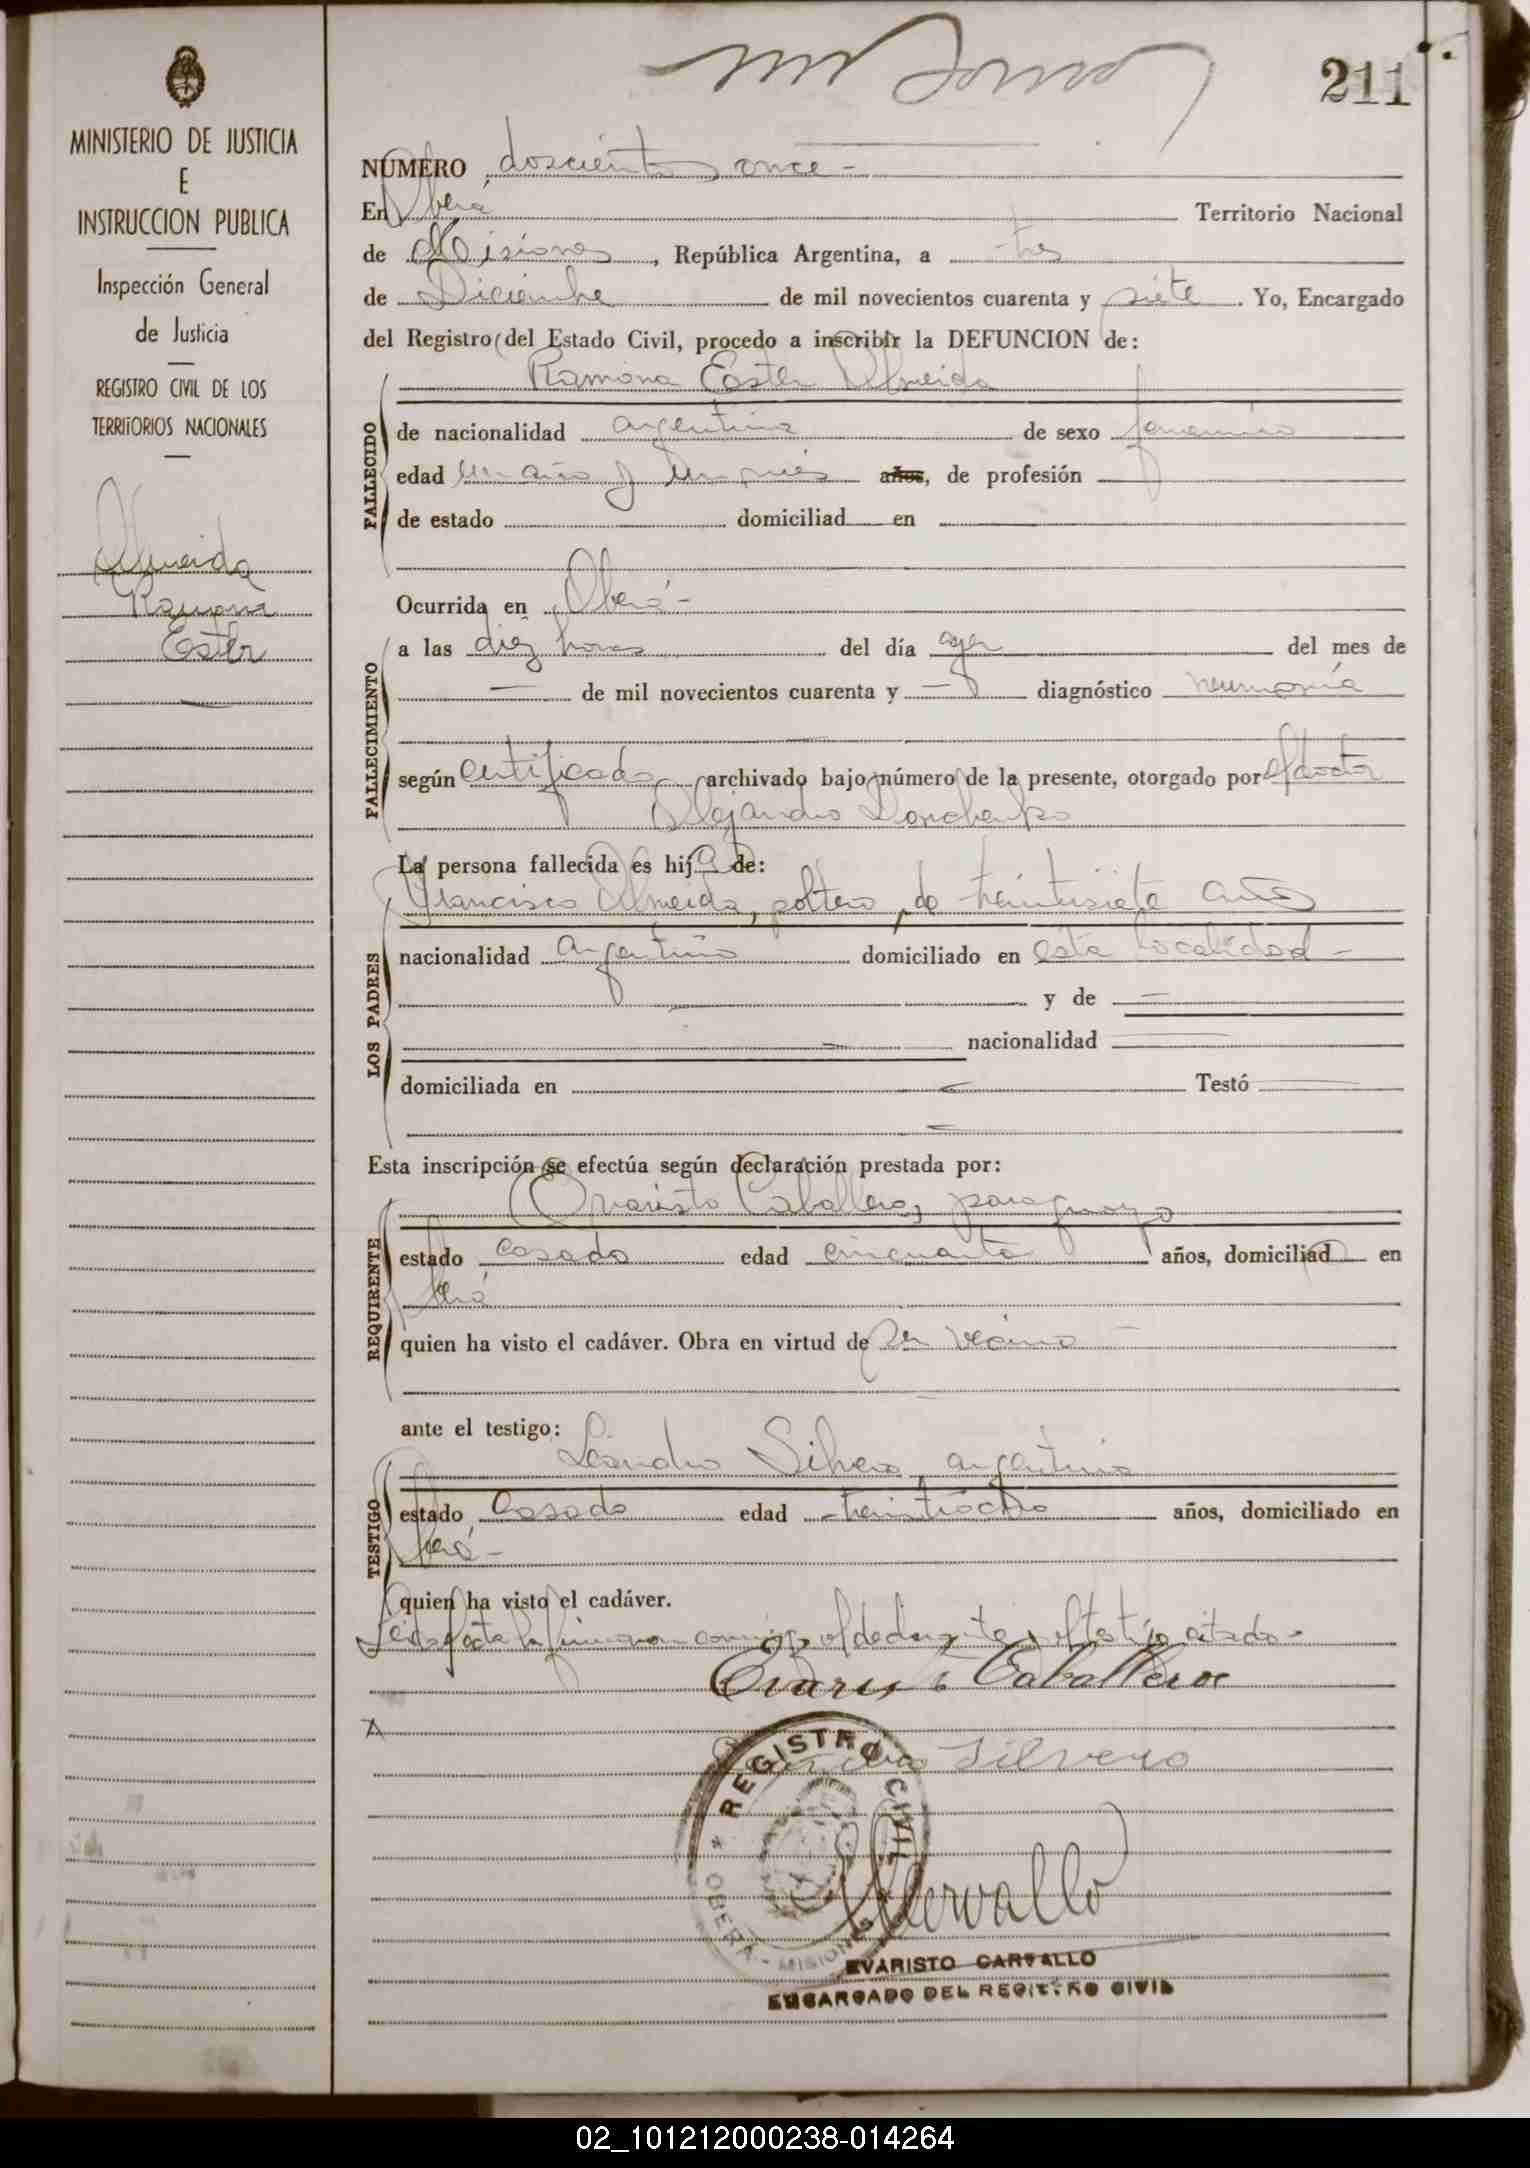 211
MINISTERIO DE JUSTICIA
E
INSTRUCCION PUBLICA
Inspección General
de Justicia
REGISTRO CIVIL DE LOS
TERRITORIOS NACIONALES
Almeida
Ramona
Ester
NÚMERO doscientos once -
En Oberá Territorio Nacional
de Misiones, República Argentina, a tres
de Diciembre de mil novecientos cuarenta y siete. Yo, Encargado
del Registro del Estado Civil, procedo a inscribir la DEFUNCION de:
Ramona Ester Almeida
FALLECIDO
de nacionalidad argentina de sexo femenino
edad un año y un mes años, de profesión
de estado domiciliad en
Ocurrida en Oberá -
FALLECIMIENTO
a las diez horas del día ayer del mes de
— de mil novecientos cuarenta y — diagnóstico neumonía
según certificado archivado bajo número de la presente, otorgado por el doctor
Alejandro
La persona fallecida es hija de:
LOS PADRES
Francisco Almeida, soltero, de treintisiete años
nacionalidad argentino domiciliado en esta localidad -
y de —
nacionalidad —
domiciliada en — Testó —
Esta inscripción se efectúa según declaración prestada por:
REQUIRENTE
Evaristo Caballero, paraguayo
estado casado edad cincuenta años, domiciliado en
Oberá
quien ha visto el cadáver. Obra en virtud de ser vecino -
ante el testigo:
TESTIGO
Leandro Silvero, argentino
estado casado edad treintiocho años, domiciliado en
Oberá -
quien ha visto el cadáver.
Leida el acta la firmaron conmigo el declarante y el testigo citado -
Evaristo Caballero
Silvero
REGISTRO CIVIL
* OBERÁ - MISIONES
Carvallo
EVARISTO CARVALLO
ENCARGADO DEL REGISTRO CIVIL
02_101212000238-014264